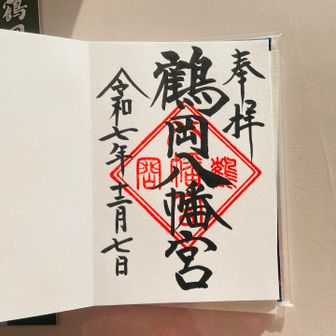 奉拝
鶴岡八幡宮
令和七年十二月七日
鶴